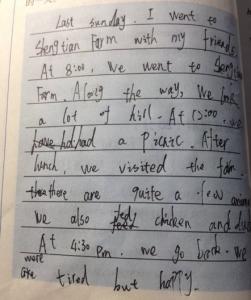 Last sunday. I went to
Shengtian Farm with my friends
At 8:00, We went to Shengtian
Farm. Along the way, We
a lot of hill. At 12:00 we
had a picnic. After
lunch, we visited the farm.
there are quite a few
We also fed chicken and
At 4:30 pm. we go back. we
were tired but happy.